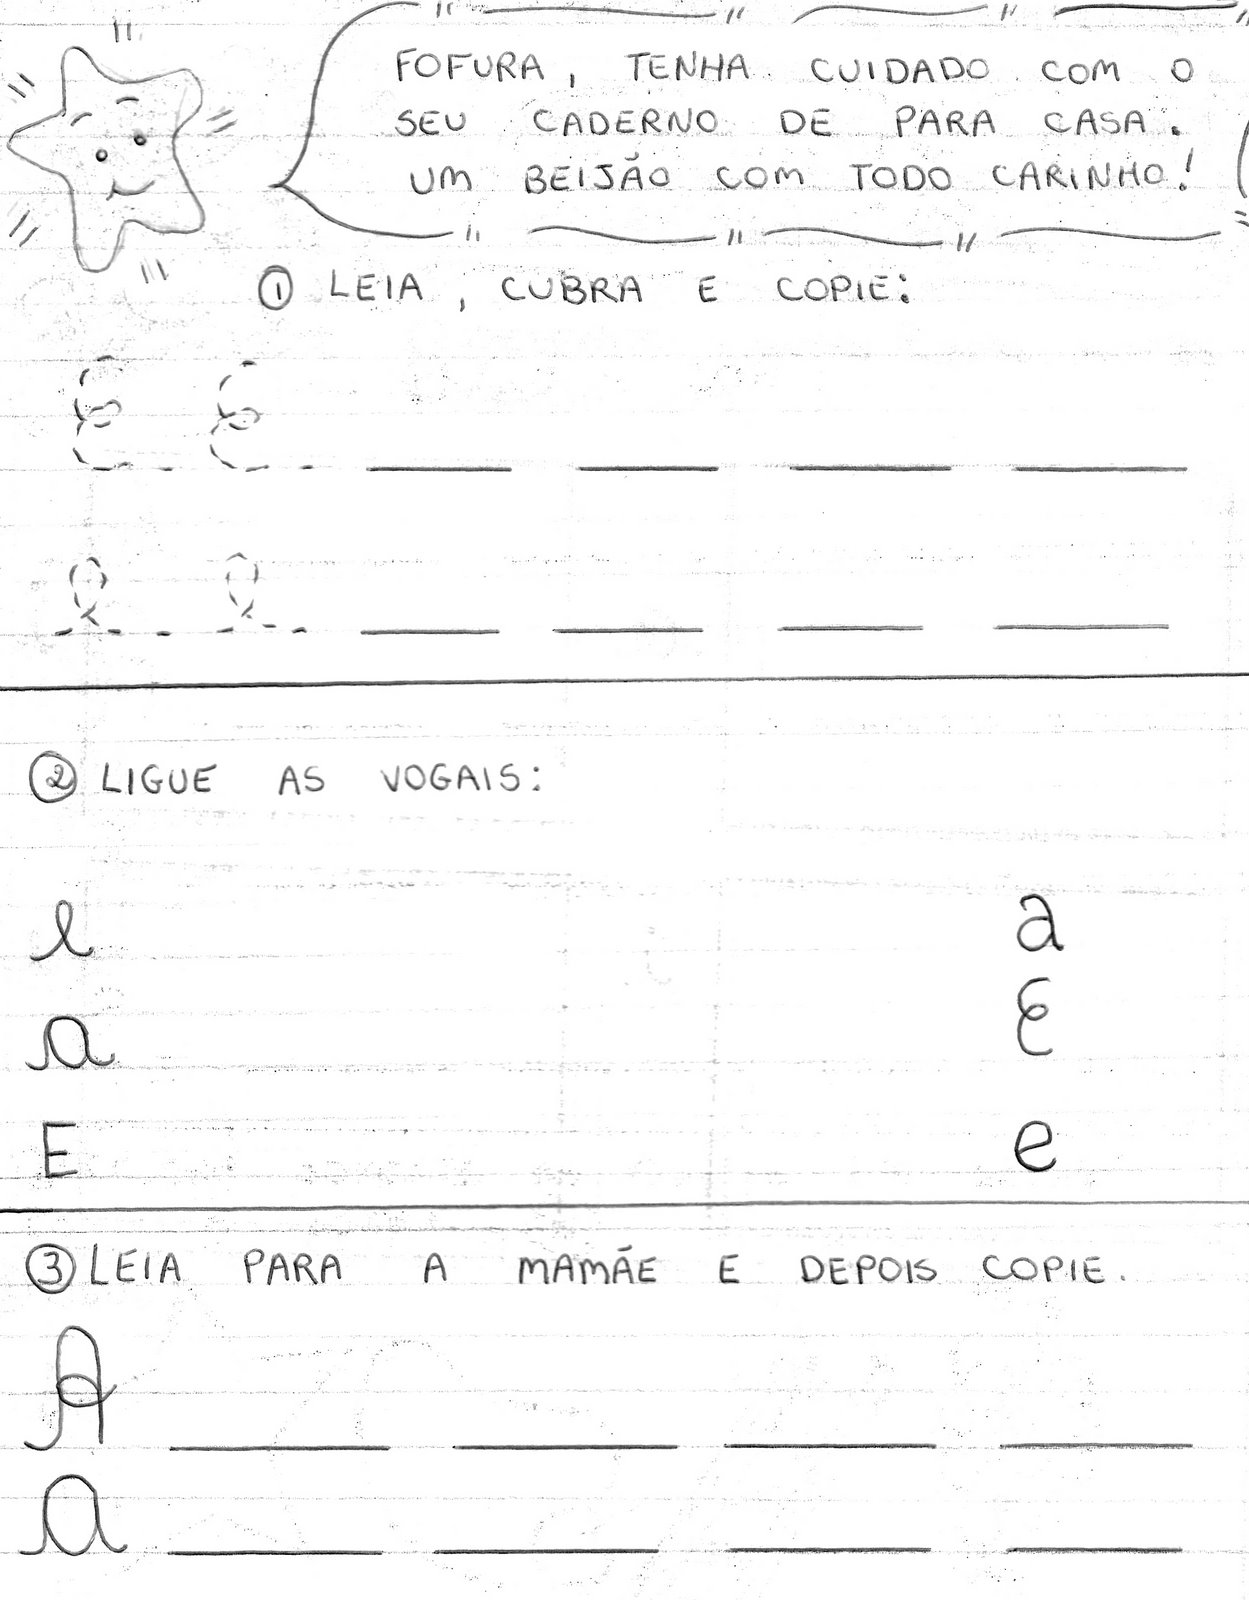 FOFURA, TENHA CUIDADO COM O
SEU CADERNO DE PARA CASA.
UM BEIJÃO COM TODO CARINHO!
1 LEIA, CUBRA E COPIE:
E E
e e
2 LIGUE AS VOGAIS:
e a
a E
E e
3 LEIA PARA A MAMÃE E DEPOIS COPIE.
A
a